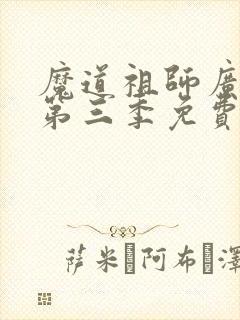 魔道祖師廣
第三季免費
萨米 阿布 澤